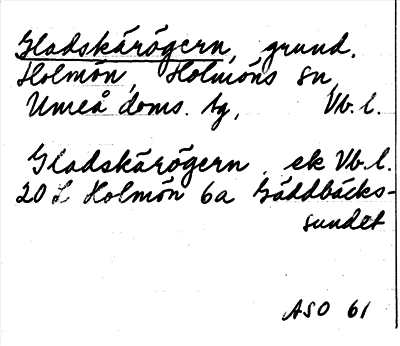 Gladskärögern, grund.
Holmön, Holmöns sn,
Umeå doms. tg, Vb. l.
Gladskärögern, ek Vb. l.
20 L Holmön 6a Gäddbäcks-
sundet
ASO 61